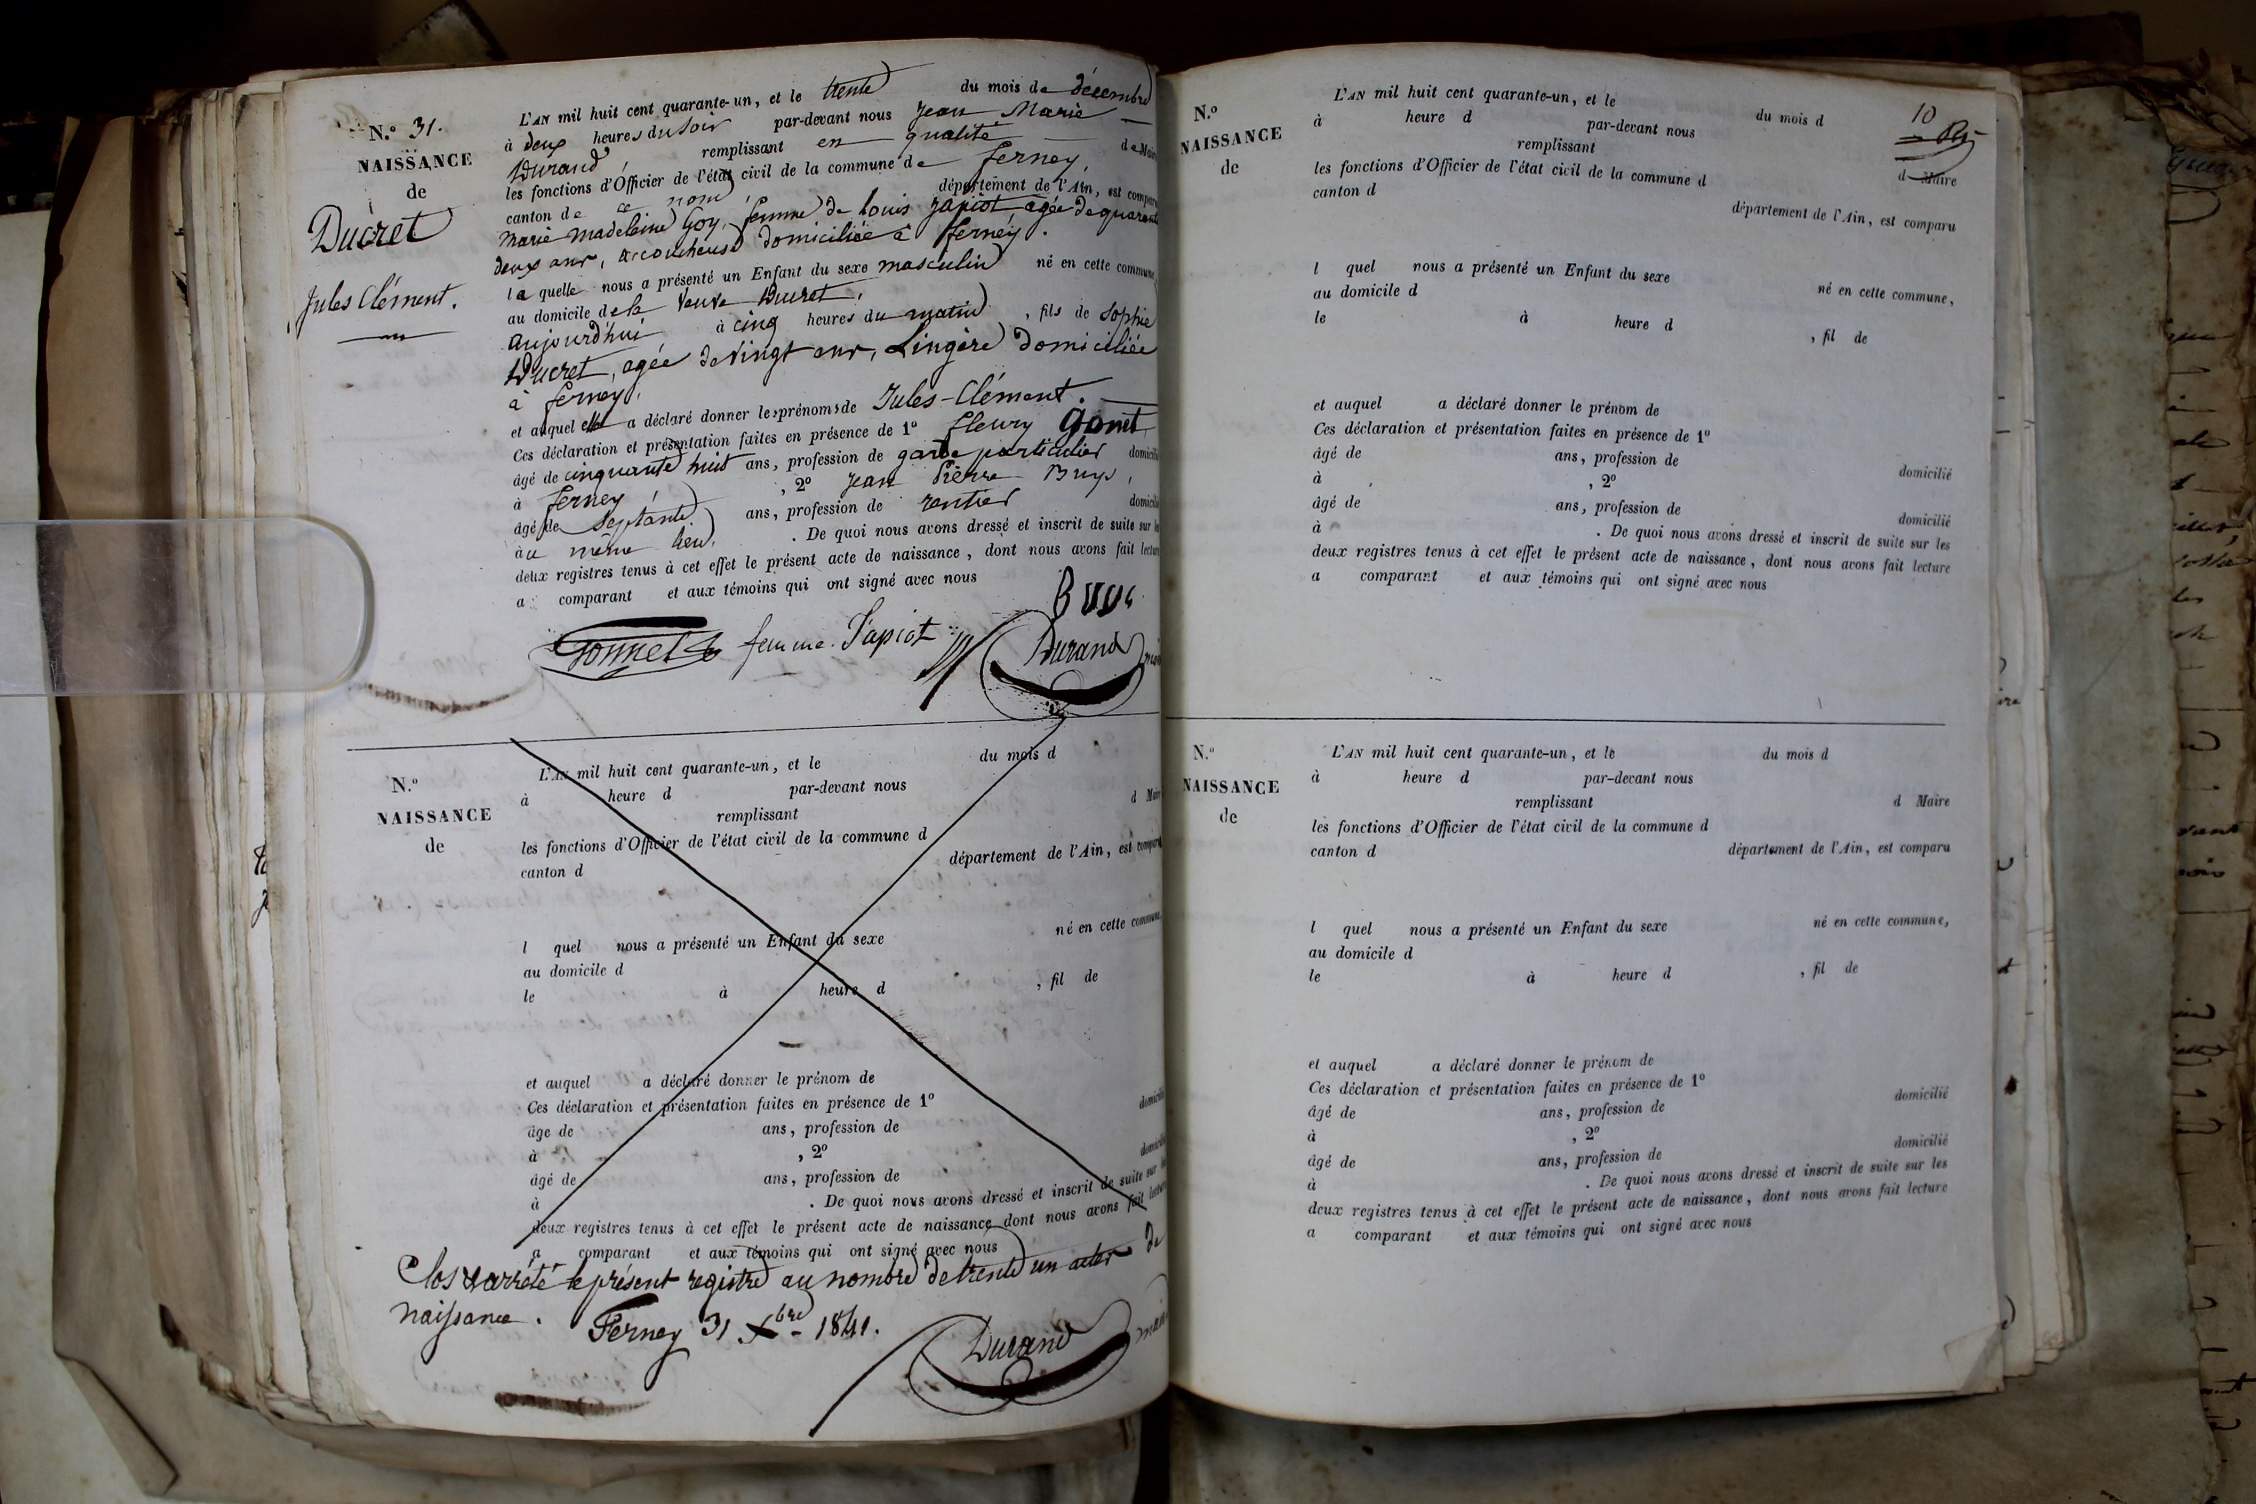 N.° 31.
NAISSANCE
de
Ducret
Jules Clément.
L'AN mil huit cent quarante-un, et le trente du mois de décembre
à deux heures du soir par-devant nous Jean Marie
Durand remplissant en qualité de Maire
les fonctions d'Officier de l'état civil de la commune de Ferney
canton de ce nom département de l'Ain, est comparu
Marie Madeleine Goy, femme de Louis Japiot agée de quarante
deux ans, accoucheuse domiciliée à Ferney.
la quelle nous a présenté un Enfant du sexe masculin né en cette commune,
au domicile de la veuve Ducret,
aujourd'hui à cinq heures du matin, fils de Sophie
Ducret, agée de vingt ans, Lingère domiciliée
à Ferney,
et auquel elle a déclaré donner les prénoms de Jules-Clément.
Ces déclaration et présentation faites en présence de 1° Fleury Gonet
âgé de cinquante huit ans, profession de garde particulier domicilié
à Ferney, 2° Jean Pierre Buys,
âgé de septante ans, profession de rentier domicilié
au même lieu. De quoi nous avons dressé et inscrit de suite sur les
deux registres tenus à cet effet le présent acte de naissance, dont nous avons fait lecture
a comparant et aux témoins qui ont signé avec nous
Buys
Gonnet femme Japiot Durand
N.°
NAISSANCE
de
L'AN mil huit cent quarante-un, et le du mois d
à heure d par-devant nous
remplissant d Maire
les fonctions d'Officier de l'état civil de la commune d
canton d département de l'Ain, est comparu
l quel nous a présenté un Enfant du sexe né en cette commune,
au domicile d
le à heure d , fil de
et auquel a déclaré donner le prénom de
Ces déclaration et présentation faites en présence de 1°
âge de ans, profession de domicilié
à , 2°
âgé de ans, profession de domicilié
à . De quoi nous avons dressé et inscrit de suite sur les
deux registres tenus à cet effet le présent acte de naissance dont nous avons fait lecture
a comparant et aux témoins qui ont signé avec nous
Clos & arrêté le présent registre au nombre de trente un actes de
naissance. Ferney 31 Xbre 1841.
Durand maire
10
N.°
NAISSANCE
de
L'AN mil huit cent quarante-un, et le du mois d
à heure d par-devant nous
remplissant d Maire
les fonctions d'Officier de l'état civil de la commune d
canton d département de l'Ain, est comparu
l quel nous a présenté un Enfant du sexe né en cette commune,
au domicile d
le à heure d , fil de
et auquel a déclaré donner le prénom de
Ces déclaration et présentation faites en présence de 1°
âgé de ans, profession de domicilié
à , 2°
âgé de ans, profession de domicilié
à . De quoi nous avons dressé et inscrit de suite sur les
deux registres tenus à cet effet le présent acte de naissance, dont nous avons fait lecture
a comparant et aux témoins qui ont signé avec nous
N.°
NAISSANCE
de
L'AN mil huit cent quarante-un, et le du mois d
à heure d par-devant nous
remplissant d Maire
les fonctions d'Officier de l'état civil de la commune d
canton d département de l'Ain, est comparu
l quel nous a présenté un Enfant du sexe né en cette commune,
au domicile d
le à heure d , fil de
et auquel a déclaré donner le prénom de
Ces déclaration et présentation faites en présence de 1°
âgé de ans, profession de domicilié
à , 2°
âgé de ans, profession de domicilié
à . De quoi nous avons dressé et inscrit de suite sur les
deux registres tenus à cet effet le présent acte de naissance, dont nous avons fait lecture
a comparant et aux témoins qui ont signé avec nous